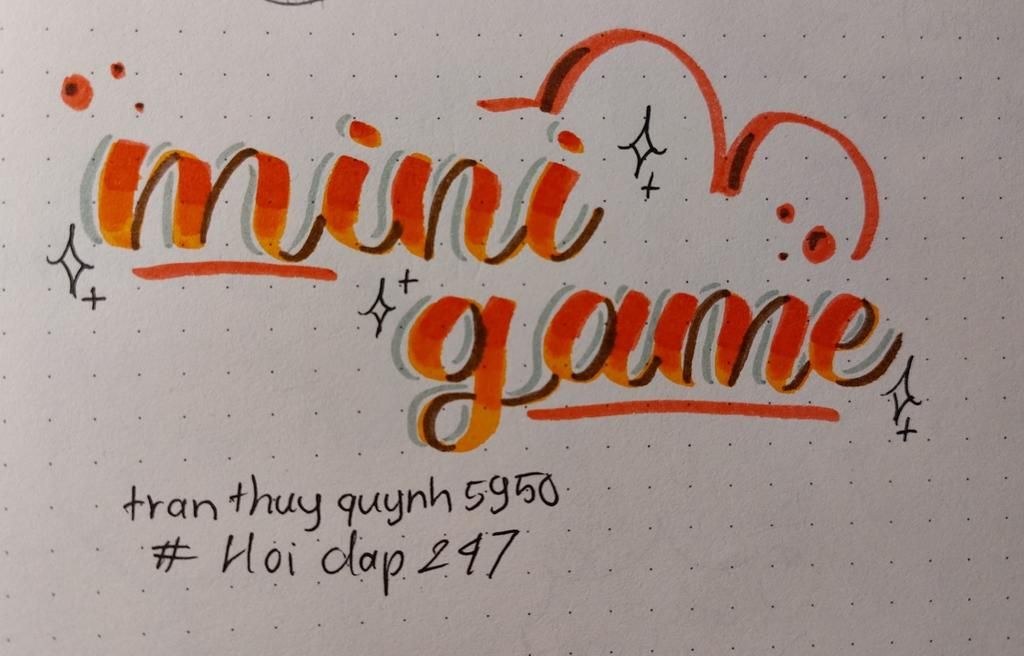 mini
game
tran thuy quynh 5950
# Hoi dap 247